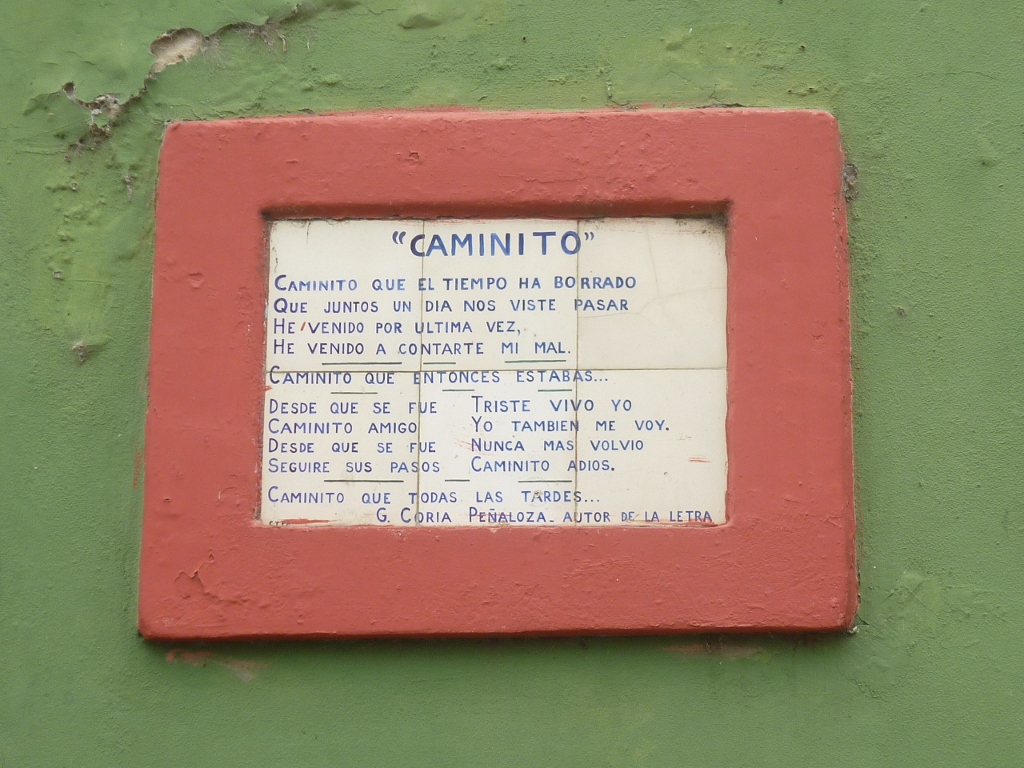 "CAMINITO"
CAMINITO QUE EL TIEMPO HA BORRADO
QUE JUNTOS UN DIA NOS VISTE PASAR
HE VENIDO POR ULTIMA VEZ,
HE VENIDO A CONTARTE MI MAL.
CAMINITO QUE ENTONCES ESTABAS...
DESDE QUE SE FUE TRISTE VIVO YO
CAMINITO AMIGO YO TAMBIEN ME VOY.
DESDE QUE SE FUE NUNCA MAS VOLVIO
SEGUIRE SUS PASOS CAMINITO ADIOS.
CAMINITO QUE TODAS LAS TARDES...
G. CORIA PEÑALOZA - AUTOR DE LA LETRA